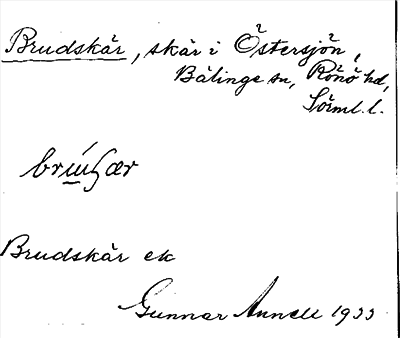 Brudskär, skär i Östersjön,
Bälinge sn, Rönö hd,
Sörml. l.
Brudskär ek
Gunnar Annell 1933